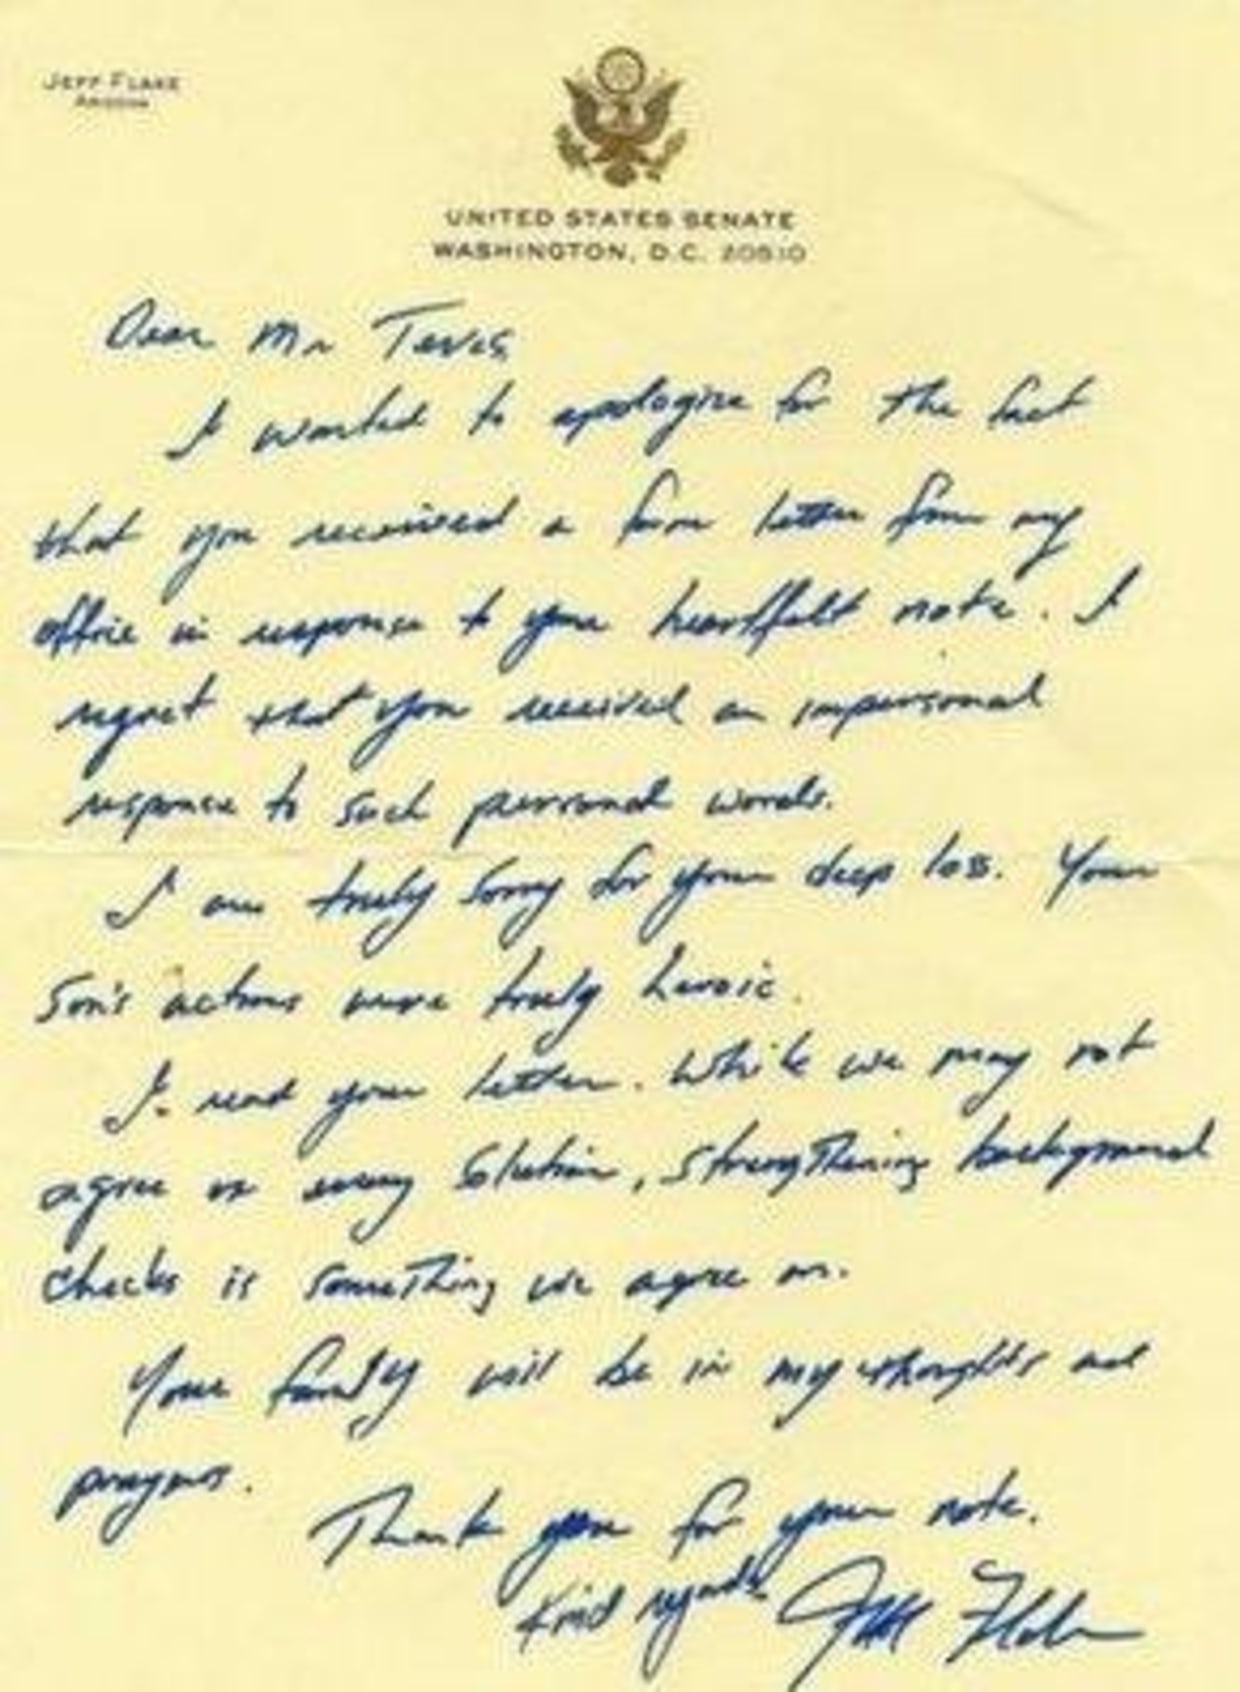 JEFF FLAKE
ARIZONA
UNITED STATES SENATE
WASHINGTON, D.C. 20510
Dear Mr Teves,
I wanted to apologize for the fact
that you received a form letter from my
office in response to your heartfelt note. I
regret that you received an impersonal
response to such personal words.
I am truly sorry for your deep loss. Your
son's actions were truly heroic.
I read your letter. While we may not
agree on every solution, strengthening background
checks is something we agree on.
Your family will be in my thoughts and
prayers.
Thank you for your note.
Kind regards Jeff Flake